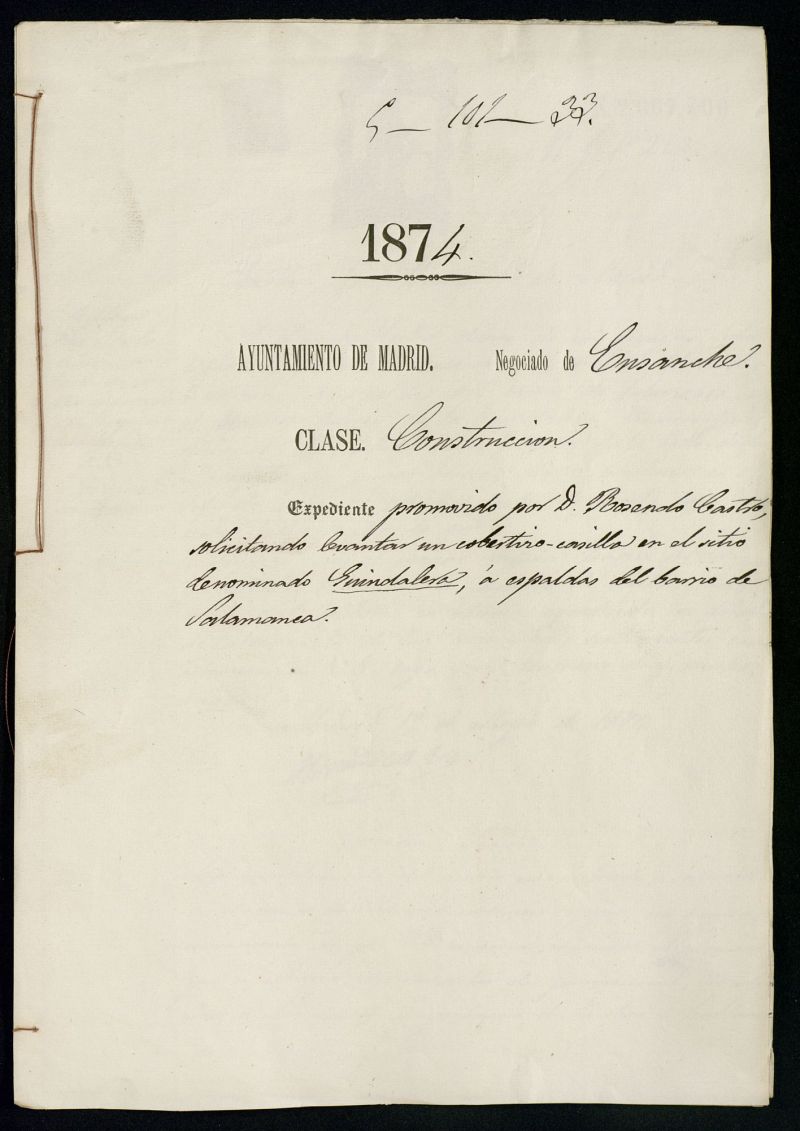 5 - 101 - 33.
1874.
AYUNTAMIENTO DE MADRID. Negociado de Ensanche.
CLASE. Construccion.
Expediente promovido por D. Rosendo Castro,
solicitando levantar un cobertizo-casilla en el sitio
denominado Guindalera, á espaldas del barrio de
Salamanca.